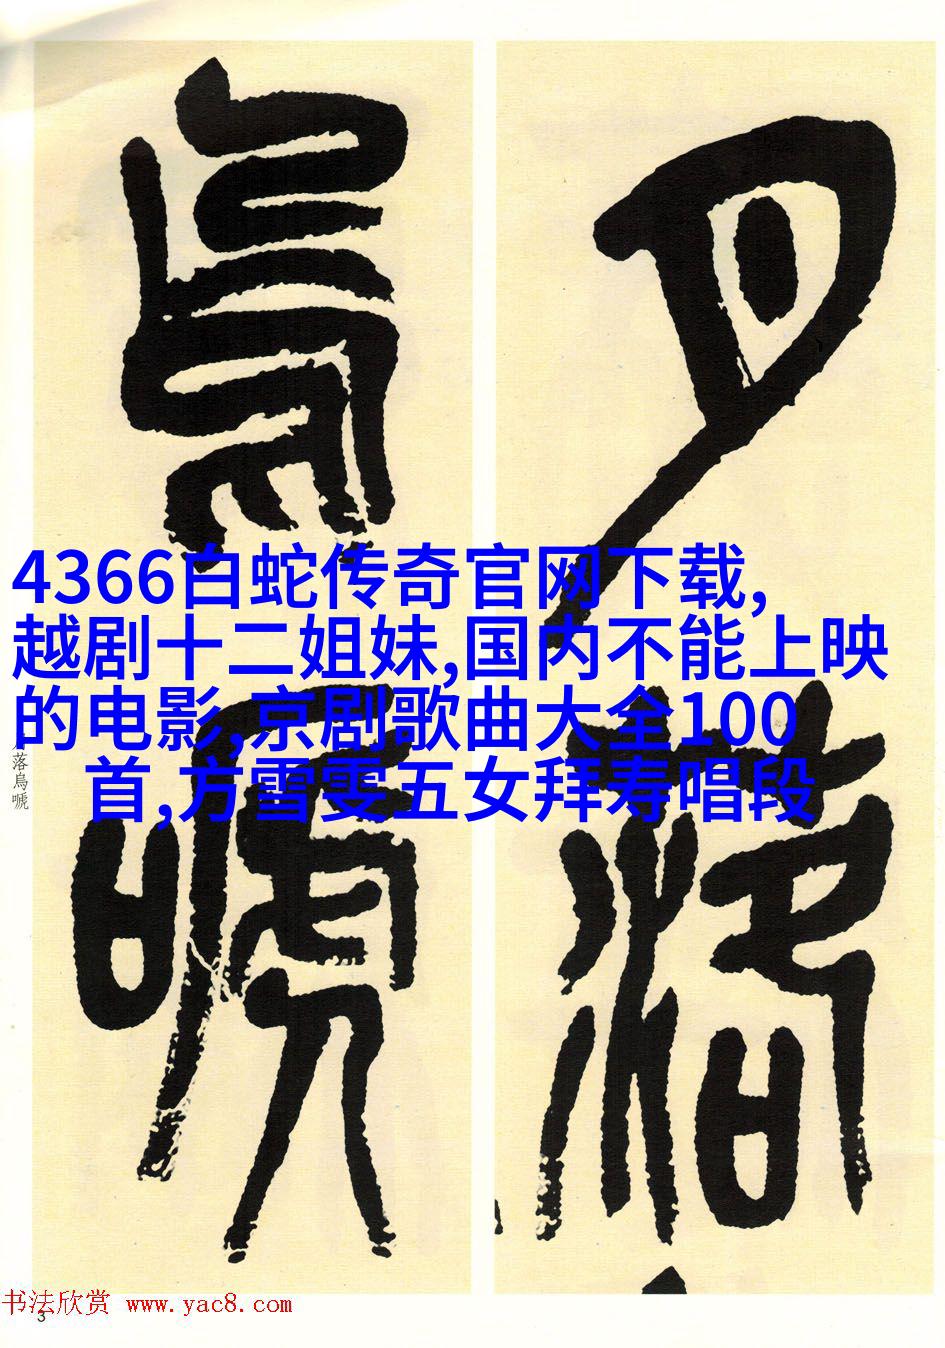 月落
烏嗁
4366白蛇传奇官网下载,
越剧十二姐妹,国内不能上映
的电影,京剧歌曲大全100
首,方雪雯五女拜寿唱段
落烏嗁
书法欣赏 www.yac8.com
3